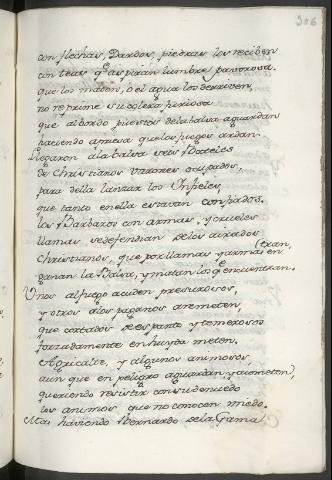 306
con flechas, Dardos, piedras los reciben
con teas qe aspiran lumbre pavorosa.
que los maten, o el agua los derriven,
no reprime su colera furiosa
que al bordo puestos de la balsa aguardan
haciendo apriesa que los fuegos ardan.
Llegaron a la balsa seis Bateles
de christianos varones ocupados,
para della lanzar los Infieles
que tanto en ella estavan confiados.
los Barbaros con armas, y crueles
llamas se defendian de los airados
(tran,
christianos, que por llamas y armas en
ganan la Balsa, y matan los qe encuentran.
Unos al fuego acuden presurosos,
y otros a los paganos arremeten,
que cortados de espanto y temerosos
forzadamente en huyda meten.
Agricalte, y algunos animosos
aun que en peligro aguardan y acometen,
queriendo resistir con su denuedo
los animos que no conocen miedo.
Mas haviendo Bernardo de la Gama